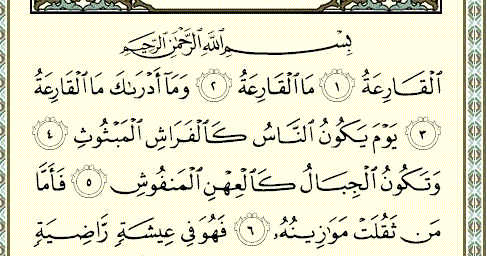 بِسْمِ اللَّهِ الرَّحْمَٰنِ الرَّحِيمِ
ٱلْقَارِعَةُ ١ مَا ٱلْقَارِعَةُ ٢ وَمَآ أَدْرَىٰكَ مَا ٱلْقَارِعَةُ
٣ يَوْمَ يَكُونُ ٱلنَّاسُ كَٱلْفَرَاشِ ٱلْمَبْثُوثِ ٤
وَتَكُونُ ٱلْجِبَالُ كَٱلْعِهْنِ ٱلْمَنفُوشِ ٥ فَأَمَّا
مَن ثَقُلَتْ مَوَٰزِينُهُۥ ٦ فَهُوَ فِى عِيشَةٍ رَّاضِيَةٍ